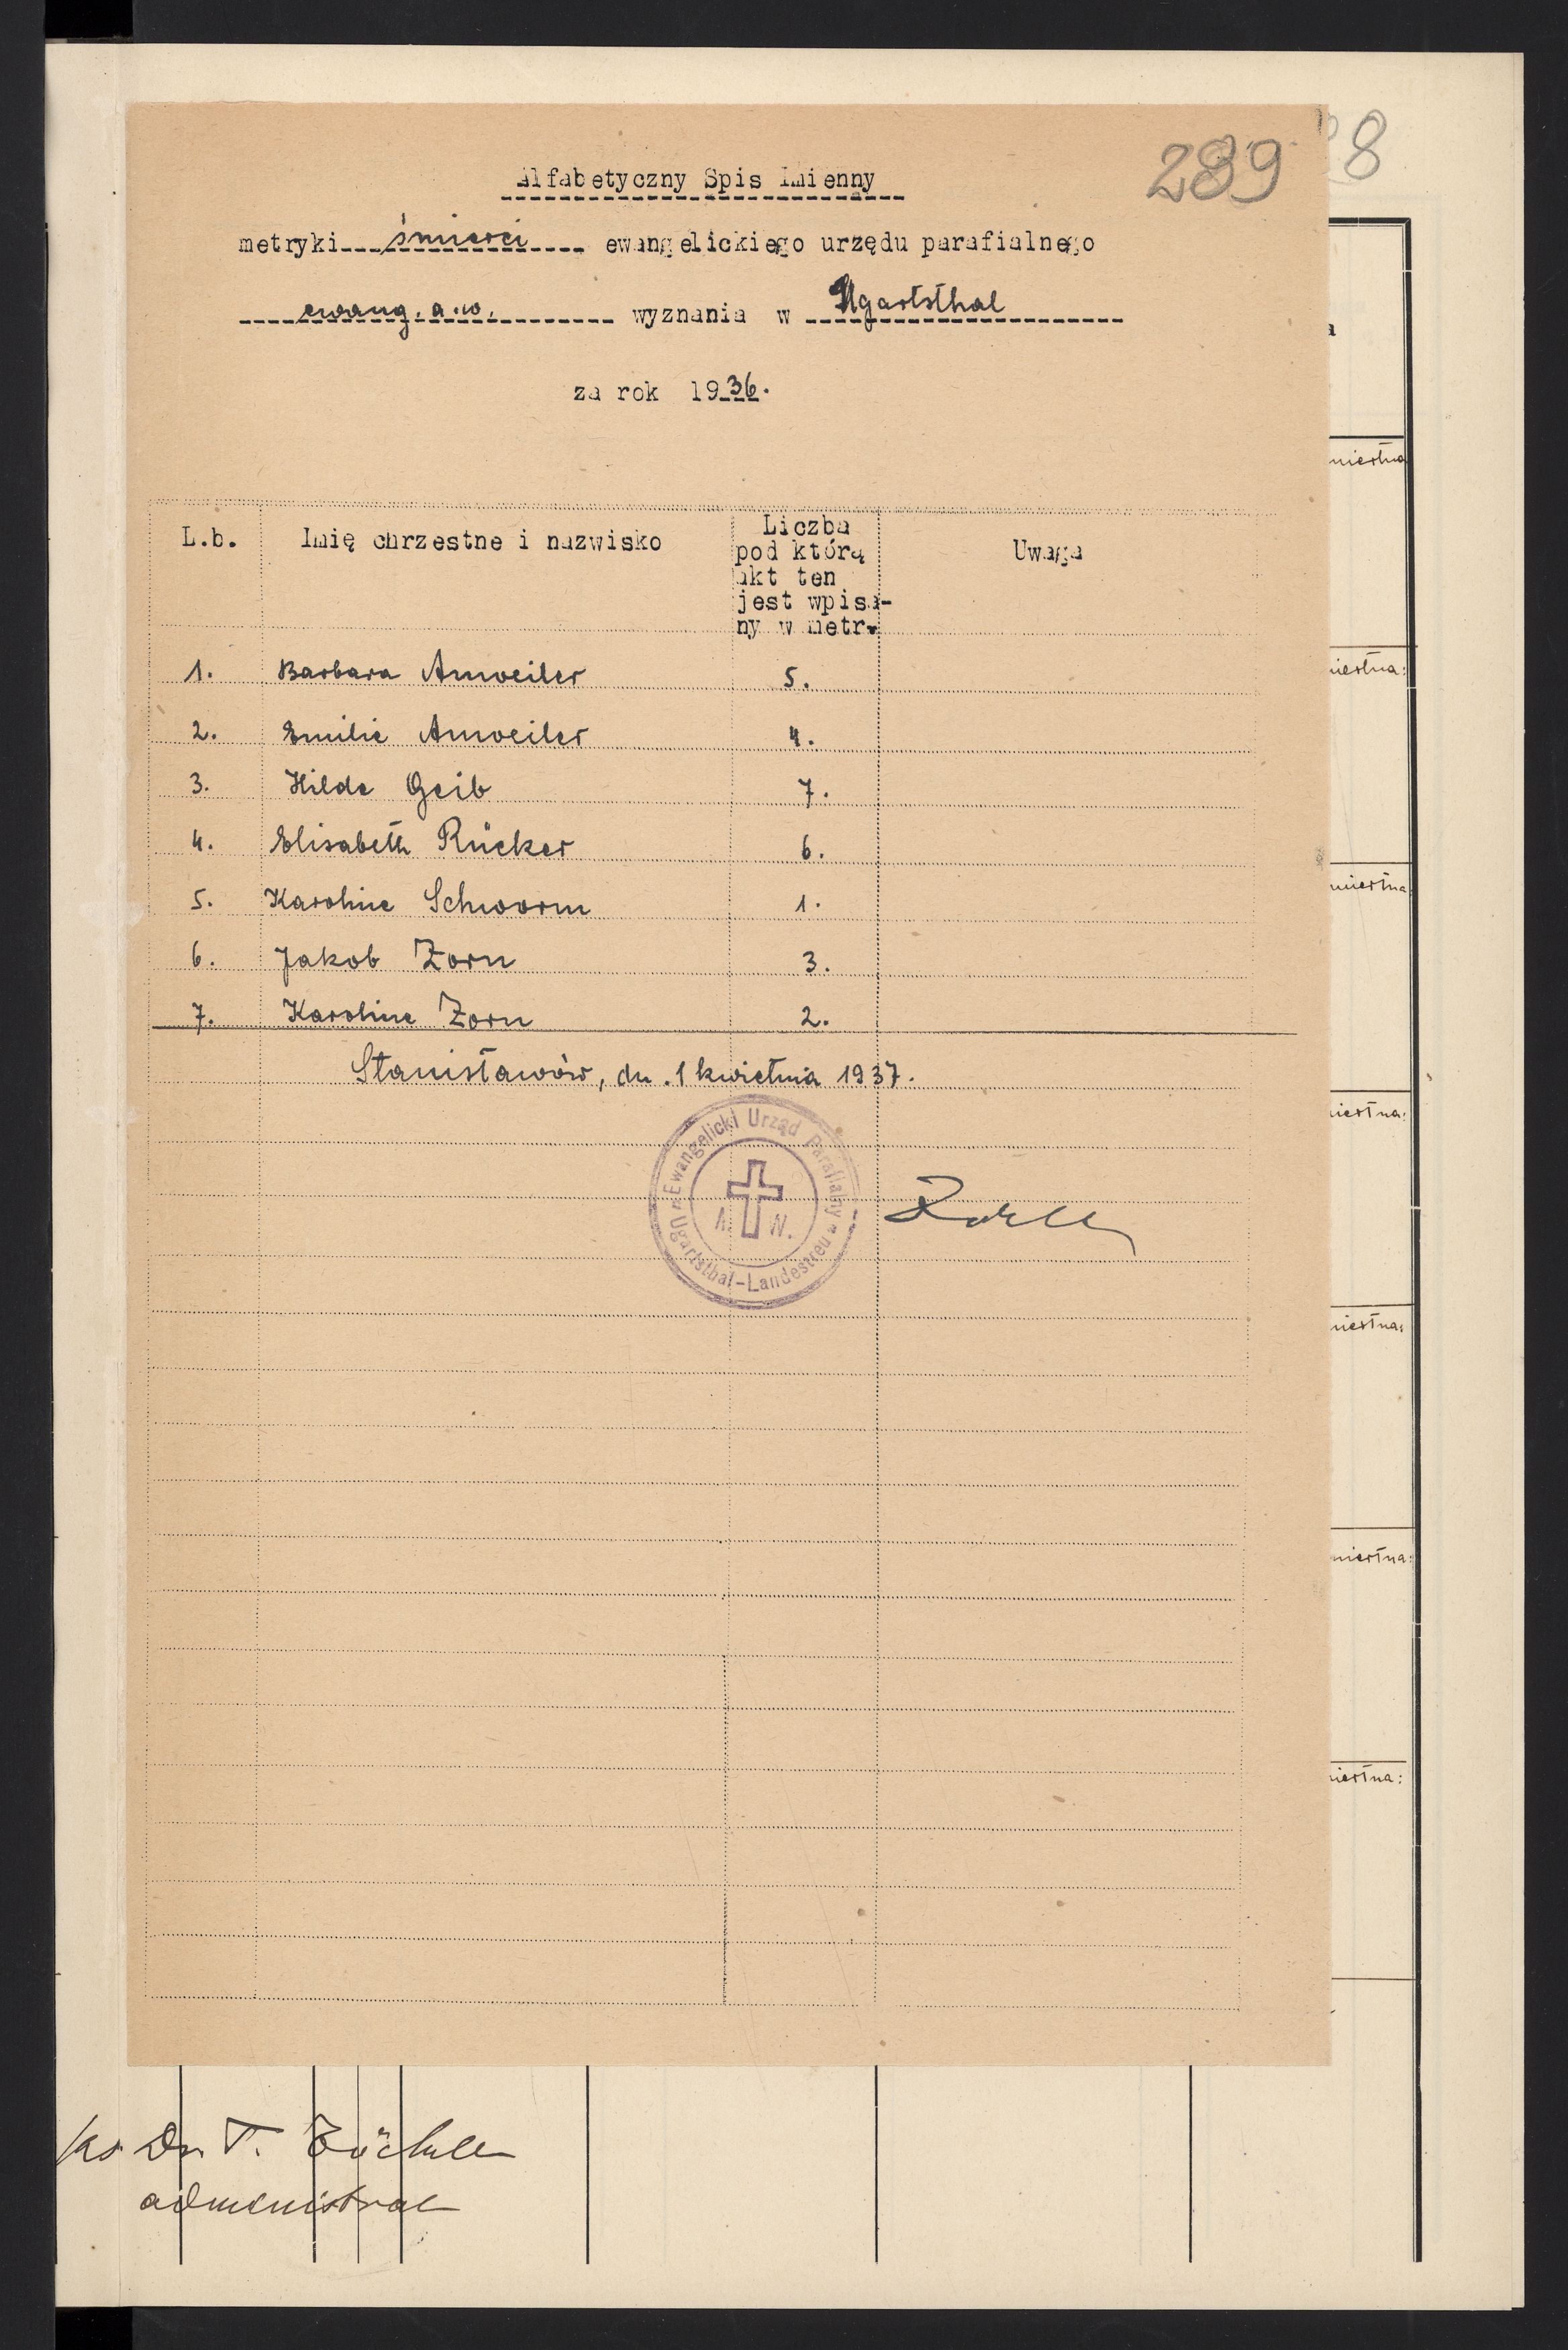 289
8
Alfabetyczny Spis Imienny
metryki śmierci ewangelickiego urzędu parafialnego
ewang. a.w. wyznania w Ugartsthal
za rok 1936.
L.b. Imię chrzestne i nazwisko Liczba pod którą akt ten jest wpisa- ny w metr. Uwaga
1. Barbara Anweiler 5.
2. Emilie Anweiler 4.
3. Hilde Geib 7.
4. Elisabeth Rücker 6.
5. Karoline Schworm 1.
6. Jakob Zorn 3.
7. Karoline Zorn 2.
Stanisławów, dn. 1 kwietnia 1937.
Ewangelicki Urząd Parafialny
Ugartsthal-Landestreu
ks. Dr. T. Zöckler
administrator